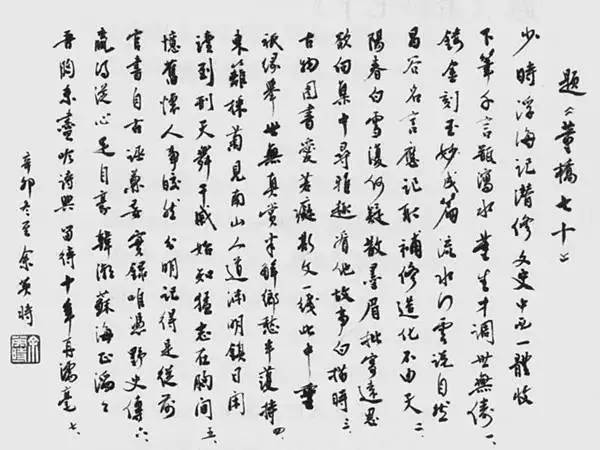 題《董橋七十》
少時浮海記潛修文史中西一體收
下筆千言瓶瀉水董生才調世無儔一、
金刻玉妙成篇流水行雲說自然
昌谷名言應記取補修造化不由天二、
陽春白雪復何疑散墨眉批寄遠思
欲向集中尋雅趣看他故事白描時三、
古物圖書愛若癡斯文一綫此中垂
祇緣舉世無真賞半解鄉愁半護持四、
東籬採菊見南山人道淵明鎮日閑
讀到刑天舞干戚始知猛志在胸間五、
憶舊懷人事皎然分明記得是從前
官書自古誣兼妄實錄唯憑野史傳六、
贏得從心足自豪韓潮蘇海正滔々
吾胸未盡吟詩興留待十年再濡毫七、
辛卯冬至余英時